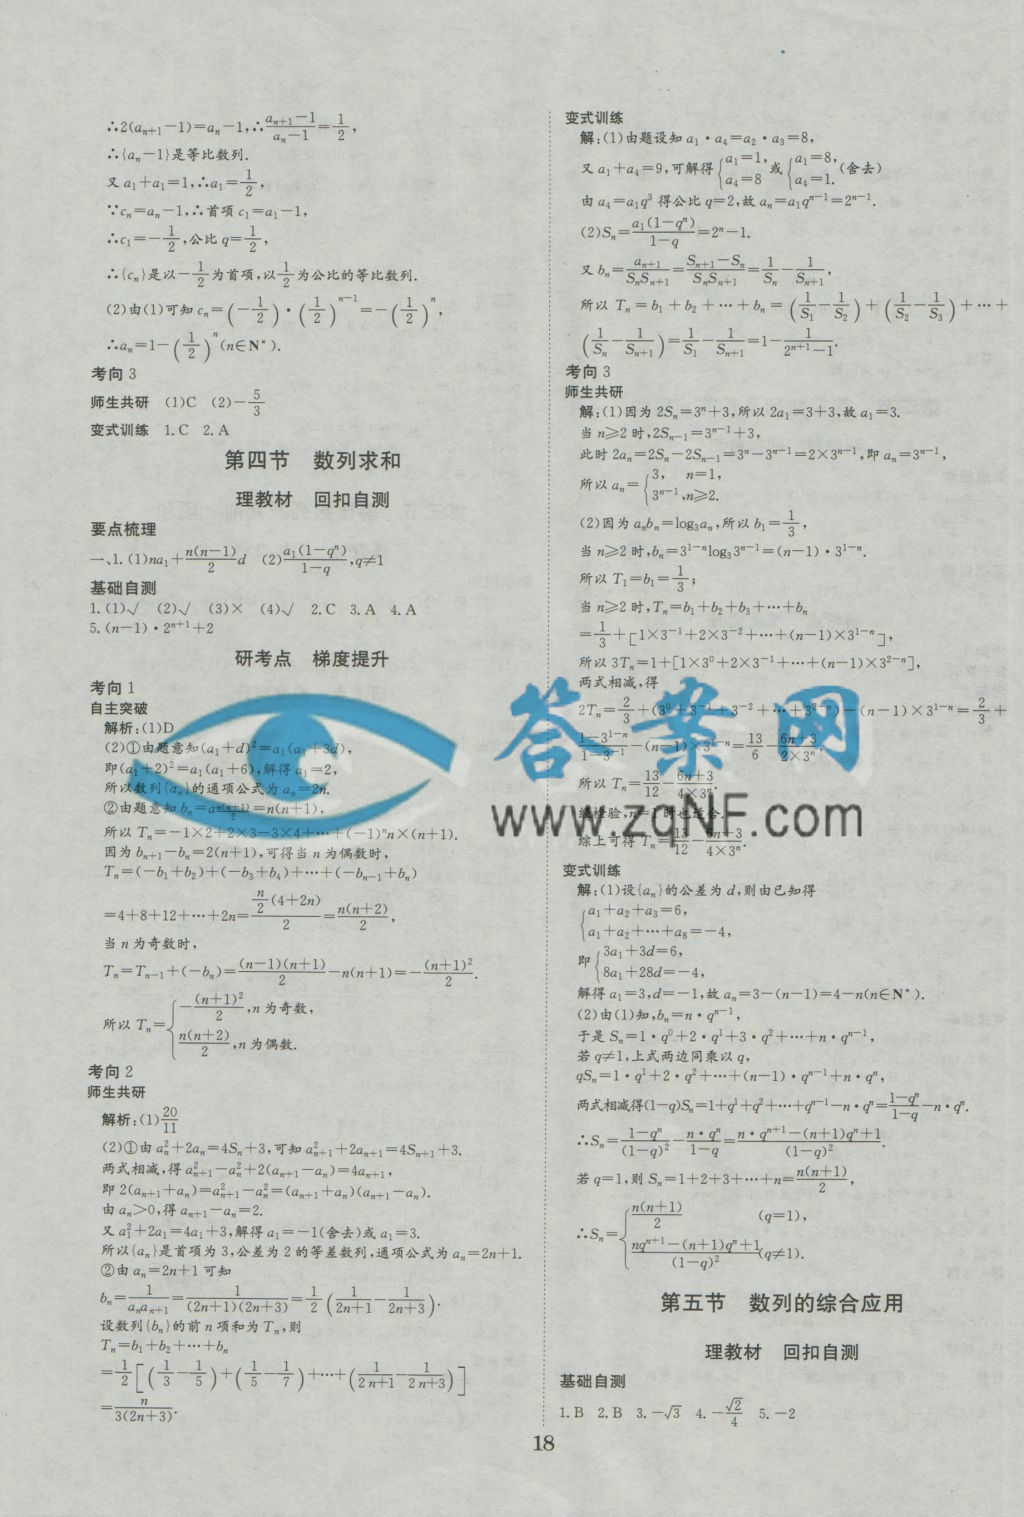 ∴2(aₙ₊₁-1)=aₙ-1,∴(aₙ₊₁-1)/(aₙ-1)=1/2,
∴{aₙ-1}是等比数列.
又a₁+a₁=1,∴a₁=1/2,
∵cₙ=aₙ-1,∴首项c₁=a₁-1,
∴c₁=-1/2,公比q=1/2,
∴{cₙ}是以-1/2为首项,以1/2为公比的等比数列.
(2)由(1)可知cₙ=(-1/2)·(1/2)^(n-1)=-(1/2)^n,
∴aₙ=1-(1/2)^n(n∈N*).
考向3
师生共研 (1)C (2)-5/3
变式训练 1.C 2.A
第四节 数列求和
理教材 回扣自测
要点梳理
一、1.(1)na₁+n(n-1)/2 d (2)a₁(1-qⁿ)/(1-q),q≠1
基础自测
1.(1)√ (2)√ (3)× (4)√ 2.C 3.A 4.A
5.(n-1)·2^(n+1)+2
研考点 梯度提升
考向1
自主突破
解析:(1)D
(2)①由题意知(a₁+d)²=a₁(a₁+3d),
即(a₁+2)²=a₁(a₁+6),解得a₁=2,
所以数列{aₙ}的通项公式为aₙ=2n.
②由题意知bₙ=a_(n(n+1)/2)=n(n+1),
所以Tₙ=-1×2+2×3-3×4+…+(-1)ⁿn×(n+1).
因为bₙ₊₁-bₙ=2(n+1),可得当n为偶数时,
Tₙ=(-b₁+b₂)+(-b₃+b₄)+…+(-bₙ₋₁+bₙ)
=4+8+12+…+2n=(n/2(4+2n))/2=n(n+2)/2,
当n为奇数时,
Tₙ=Tₙ₋₁+(-bₙ)=(n-1)(n+1)/2-n(n+1)=-(n+1)²/2.
所以Tₙ={-(n+1)²/2,n为奇数,
n(n+2)/2,n为偶数.
考向2
师生共研
解析:(1)20/11
(2)①由aₙ²+2aₙ=4Sₙ+3,可知aₙ₊₁²+2aₙ₊₁=4Sₙ₊₁+3.
两式相减,得aₙ₊₁²-aₙ²+2(aₙ₊₁-aₙ)=4aₙ₊₁,
即2(aₙ₊₁+aₙ)=aₙ₊₁²-aₙ²=(aₙ₊₁+aₙ)(aₙ₊₁-aₙ).
由aₙ>0,得aₙ₊₁-aₙ=2.
又a₁²+2a₁=4a₁+3,解得a₁=-1(舍去)或a₁=3.
所以{aₙ}是首项为3,公差为2的等差数列,通项公式为aₙ=2n+1.
②由aₙ=2n+1可知
bₙ=1/(aₙaₙ₊₁)=1/((2n+1)(2n+3))=1/2(1/(2n+1)-1/(2n+3)).
设数列{bₙ}的前n项和为Tₙ,则
Tₙ=b₁+b₂+…+bₙ
=1/2[(1/3-1/5)+(1/5-1/7)+…+(1/(2n+1)-1/(2n+3))]
=n/(3(2n+3)).
变式训练
解:(1)由题设知a₁·a₄=a₂·a₃=8,
又a₁+a₄=9,可解得{a₁=1, a₄=8 或{a₁=8, a₄=1.(舍去)
由a₄=a₁q³得公比q=2,故aₙ=a₁q^(n-1)=2^(n-1).
(2)Sₙ=a₁(1-qⁿ)/(1-q)=2ⁿ-1.
又bₙ=aₙ₊₁/(SₙSₙ₊₁)=(Sₙ₊₁-Sₙ)/(SₙSₙ₊₁)=1/Sₙ-1/Sₙ₊₁,
所以Tₙ=b₁+b₂+…+bₙ=(1/S₁-1/S₂)+(1/S₂-1/S₃)+…+
(1/Sₙ-1/Sₙ₊₁)=1/S₁-1/Sₙ₊₁=1-1/(2^(n+1)-1).
考向3
师生共研
解:(1)因为2Sₙ=3ⁿ+3,所以2a₁=3+3,故a₁=3.
当n≥2时,2Sₙ₋₁=3^(n-1)+3,
此时2aₙ=2Sₙ-2Sₙ₋₁=3ⁿ-3^(n-1)=2×3^(n-1),即aₙ=3^(n-1),
所以aₙ={3, n=1,
3^(n-1),n≥2.
(2)因为aₙbₙ=log₃aₙ,所以b₁=1/3,
当n≥2时,bₙ=3^(1-n)log₃3^(n-1)=(n-1)·3^(1-n).
所以T₁=b₁=1/3;
当n≥2时,Tₙ=b₁+b₂+b₃+…+bₙ
=1/3+[1×3⁻¹+2×3⁻²+…+(n-1)×3^(1-n)],
所以3Tₙ=1+[1×3⁰+2×3⁻¹+…+(n-1)×3^(2-n)],
两式相减,得
2Tₙ=2/3+(3⁰+3⁻¹+3⁻²+…+3^(2-n))-(n-1)×3^(1-n)=2/3+
(1-3^(1-n))/(1-3⁻¹)-(n-1)×3^(1-n)=13/6-(6n+3)/(2×3ⁿ),
所以Tₙ=13/12-(6n+3)/(4×3ⁿ).
经检验,n=1时也适合.
综上可得Tₙ=13/12-(6n+3)/(4×3ⁿ).
变式训练
解:(1)设{aₙ}的公差为d,则由已知得
{a₁+a₂+a₃=6,
a₁+a₂+…+a₈=-4,
即{3a₁+3d=6,
8a₁+28d=-4,
解得a₁=3,d=-1,故aₙ=3-(n-1)=4-n(n∈N*).
(2)由(1)知,bₙ=n·q^(n-1),
于是Sₙ=1·q⁰+2·q¹+3·q²+…+n·q^(n-1),
若q≠1,上式两边同乘以q,
qSₙ=1·q¹+2·q²+…+(n-1)·q^(n-1)+n·qⁿ,
两式相减得(1-q)Sₙ=1+q¹+q²+…+q^(n-1)-n·qⁿ=(1-qⁿ)/(1-q)-n·qⁿ.
∴Sₙ=(1-qⁿ)/(1-q)²-n·qⁿ/(1-q)=(n·q^(n+1)-(n+1)qⁿ+1)/(1-q)².
若q=1,则Sₙ=1+2+3+…+n=n(n+1)/2,
∴Sₙ={n(n+1)/2 (q=1),
(nq^(n+1)-(n+1)qⁿ+1)/(1-q)² (q≠1).
第五节 数列的综合应用
理教材 回扣自测
基础自测
1.B 2.B 3.-√3 4.-√2/4 5.-2
18
答案网
www.zqNF.com